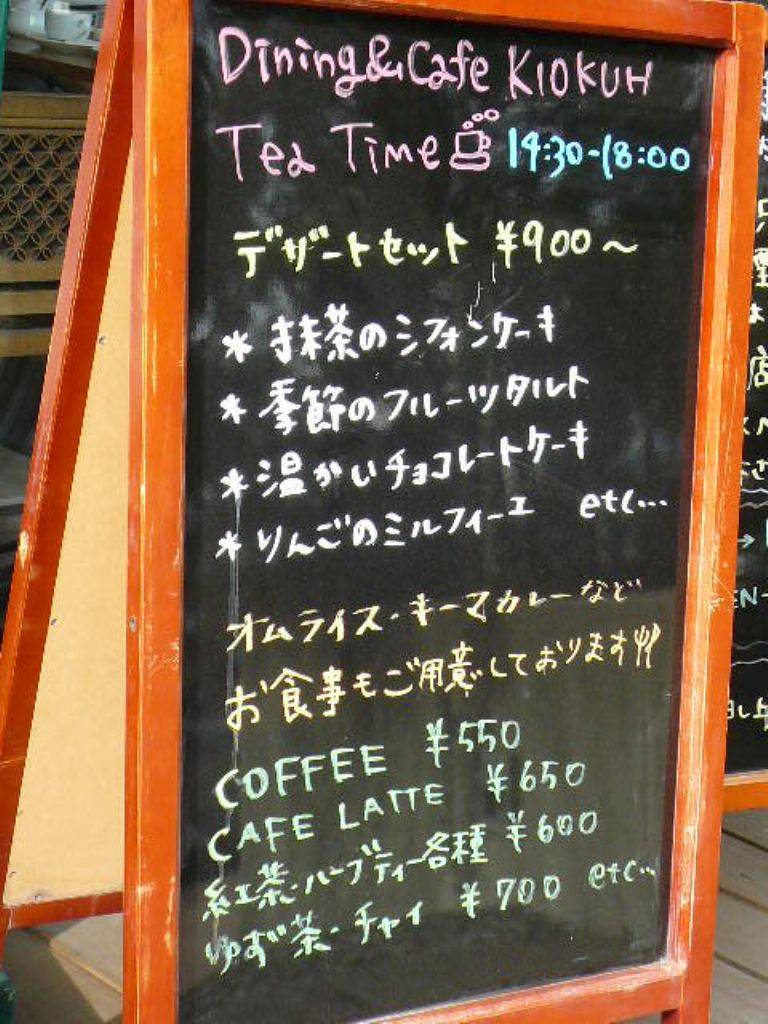 Dining&Cafe KIOKUH
Tea Time 14:30-18:00
デザートセット ¥900〜
* 抹茶のシフォンケーキ
* 季節のフルーツタルト
* 温かいチョコレートケーキ
* りんごのミルフィーユ etc...
オムライス・キーマカレーなど
お食事もご用意しております!!
COFFEE ¥550
CAFE LATTE ¥650
紅茶・ハーブティー各種 ¥600
ゆず茶・チャイ ¥700 etc...